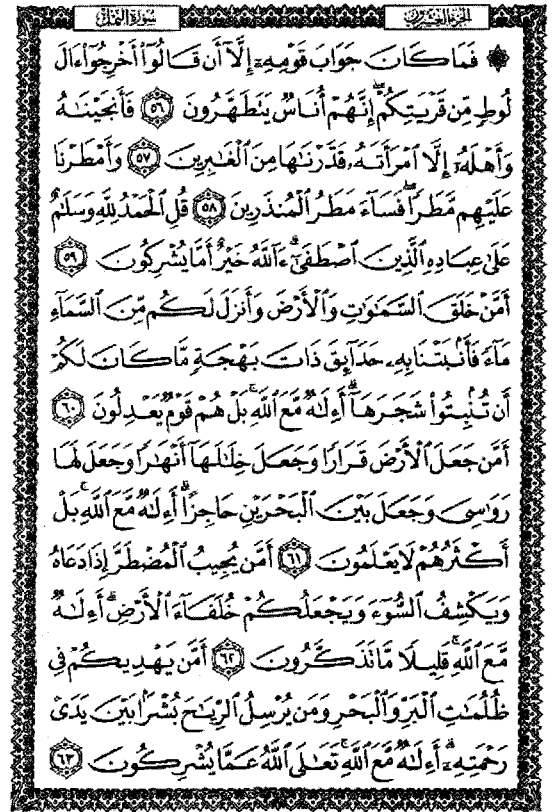 الجزء العشرون
سورة النمل
۞ فَمَا كَانَ جَوَابَ قَوْمِهِۦٓ إِلَّآ أَن قَالُوٓا۟ أَخْرِجُوٓا۟ ءَالَ
لُوطٍ مِّن قَرْيَتِكُمْ ۖ إِنَّهُمْ أُنَاسٌ يَتَطَهَّرُونَ ٥٦ فَأَنجَيْنَـٰهُ
وَأَهْلَهُۥٓ إِلَّا ٱمْرَأَتَهُۥ قَدَّرْنَـٰهَا مِنَ ٱلْغَـٰبِرِينَ ٥٧ وَأَمْطَرْنَا
عَلَيْهِم مَّطَرًا ۖ فَسَآءَ مَطَرُ ٱلْمُنذَرِينَ ٥٨ قُلِ ٱلْحَمْدُ لِلَّهِ وَسَلَـٰمٌ
عَلَىٰ عِبَادِهِ ٱلَّذِينَ ٱصْطَفَىٰٓ ۗ ءَآللَّهُ خَيْرٌ أَمَّا يُشْرِكُونَ ٥٩
أَمَّنْ خَلَقَ ٱلسَّمَـٰوَٰتِ وَٱلْأَرْضَ وَأَنزَلَ لَكُم مِّنَ ٱلسَّمَآءِ
مَآءً فَأَنۢبَتْنَا بِهِۦ حَدَآئِقَ ذَاتَ بَهْجَةٍ مَّا كَانَ لَكُمْ
أَن تُنۢبِتُوا۟ شَجَرَهَآ ۗ أَءِلَـٰهٌ مَّعَ ٱللَّهِ ۚ بَلْ هُمْ قَوْمٌ يَعْدِلُونَ ٦٠
أَمَّن جَعَلَ ٱلْأَرْضَ قَرَارًا وَجَعَلَ خِلَـٰلَهَآ أَنْهَـٰرًا وَجَعَلَ لَهَا
رَوَٰسِىَ وَجَعَلَ بَيْنَ ٱلْبَحْرَيْنِ حَاجِزًا ۗ أَءِلَـٰهٌ مَّعَ ٱللَّهِ ۚ بَلْ
أَكْثَرُهُمْ لَا يَعْلَمُونَ ٦١ أَمَّن يُجِيبُ ٱلْمُضْطَرَّ إِذَا دَعَاهُ
وَيَكْشِفُ ٱلسُّوٓءَ وَيَجْعَلُكُمْ خُلَفَآءَ ٱلْأَرْضِ ۗ أَءِلَـٰهٌ
مَّعَ ٱللَّهِ ۚ قَلِيلًا مَّا تَذَكَّرُونَ ٦٢ أَمَّن يَهْدِيكُمْ فِى
ظُلُمَـٰتِ ٱلْبَرِّ وَٱلْبَحْرِ وَمَن يُرْسِلُ ٱلرِّيَـٰحَ بُشْرًۢا بَيْنَ يَدَىْ
رَحْمَتِهِۦٓ ۗ أَءِلَـٰهٌ مَّعَ ٱللَّهِ ۚ تَعَـٰلَى ٱللَّهُ عَمَّا يُشْرِكُونَ ٦٣